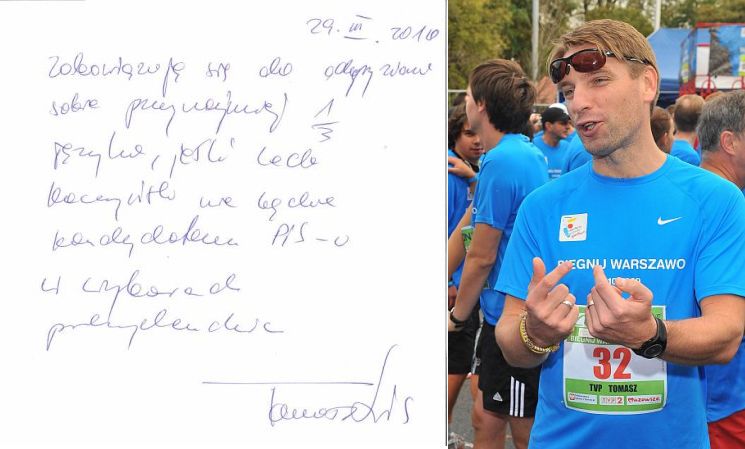 29. III. 2010
zobowiązuję się do odgryzienia
sobie przynajmniej 1/3
języka, jeśli Lech
Kaczyński nie będzie
kandydatem PiS-u
w wyborach
prezydenckich
Tomasz Lis
BIEGNIJ WARSZAWO
BIEGNIJ
32
TVP TOMASZ